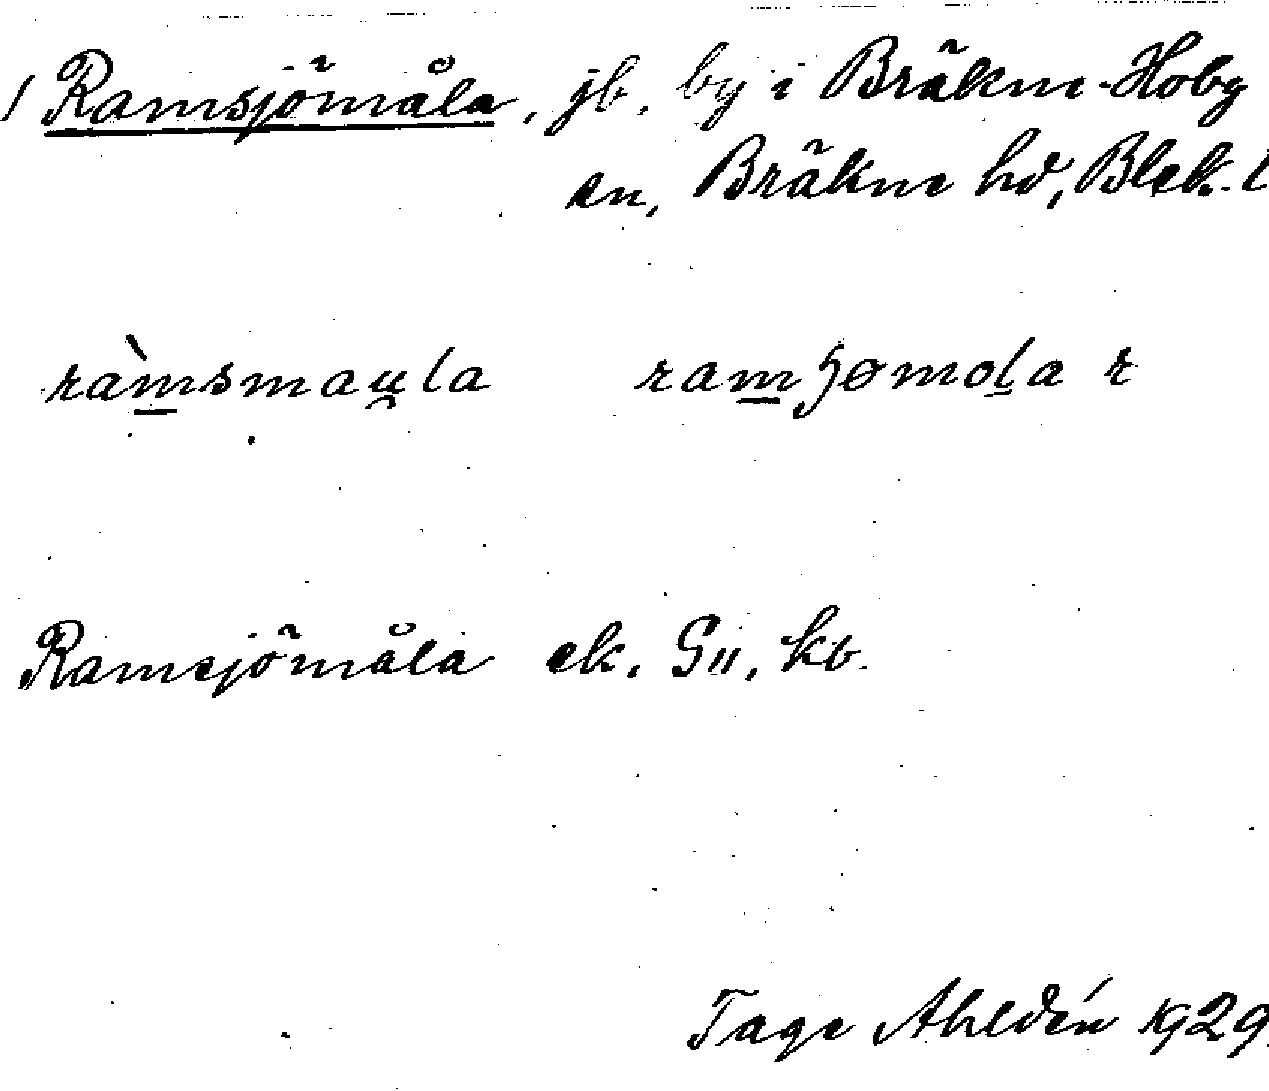 / Ramsjömåla, jb. by i Bräkne-Hoby
sn, Bräkne hd, Blek. l
ràmsmau̯la ramʃomola r
Ramsjömåla ek. G11, kb.
Tage Ahldén 1929.